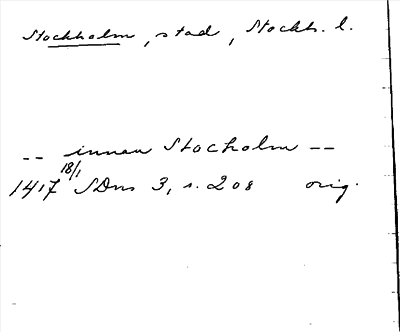 Stockholm, stad, Stockh. l.
-- innan Stocholm --
1417 18/1 SDns 3, s. 208 orig.